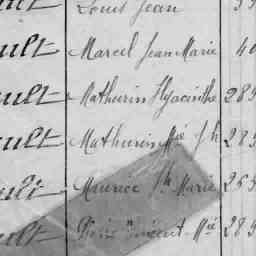 ult Louis Jean
ult Marcel Jean Marie 40
ult Mathurin Hyacinthe 285
ult Mathurin Mie Jh 285
ult Maurice Marie 265
ult Pierre Vincent Mie 285